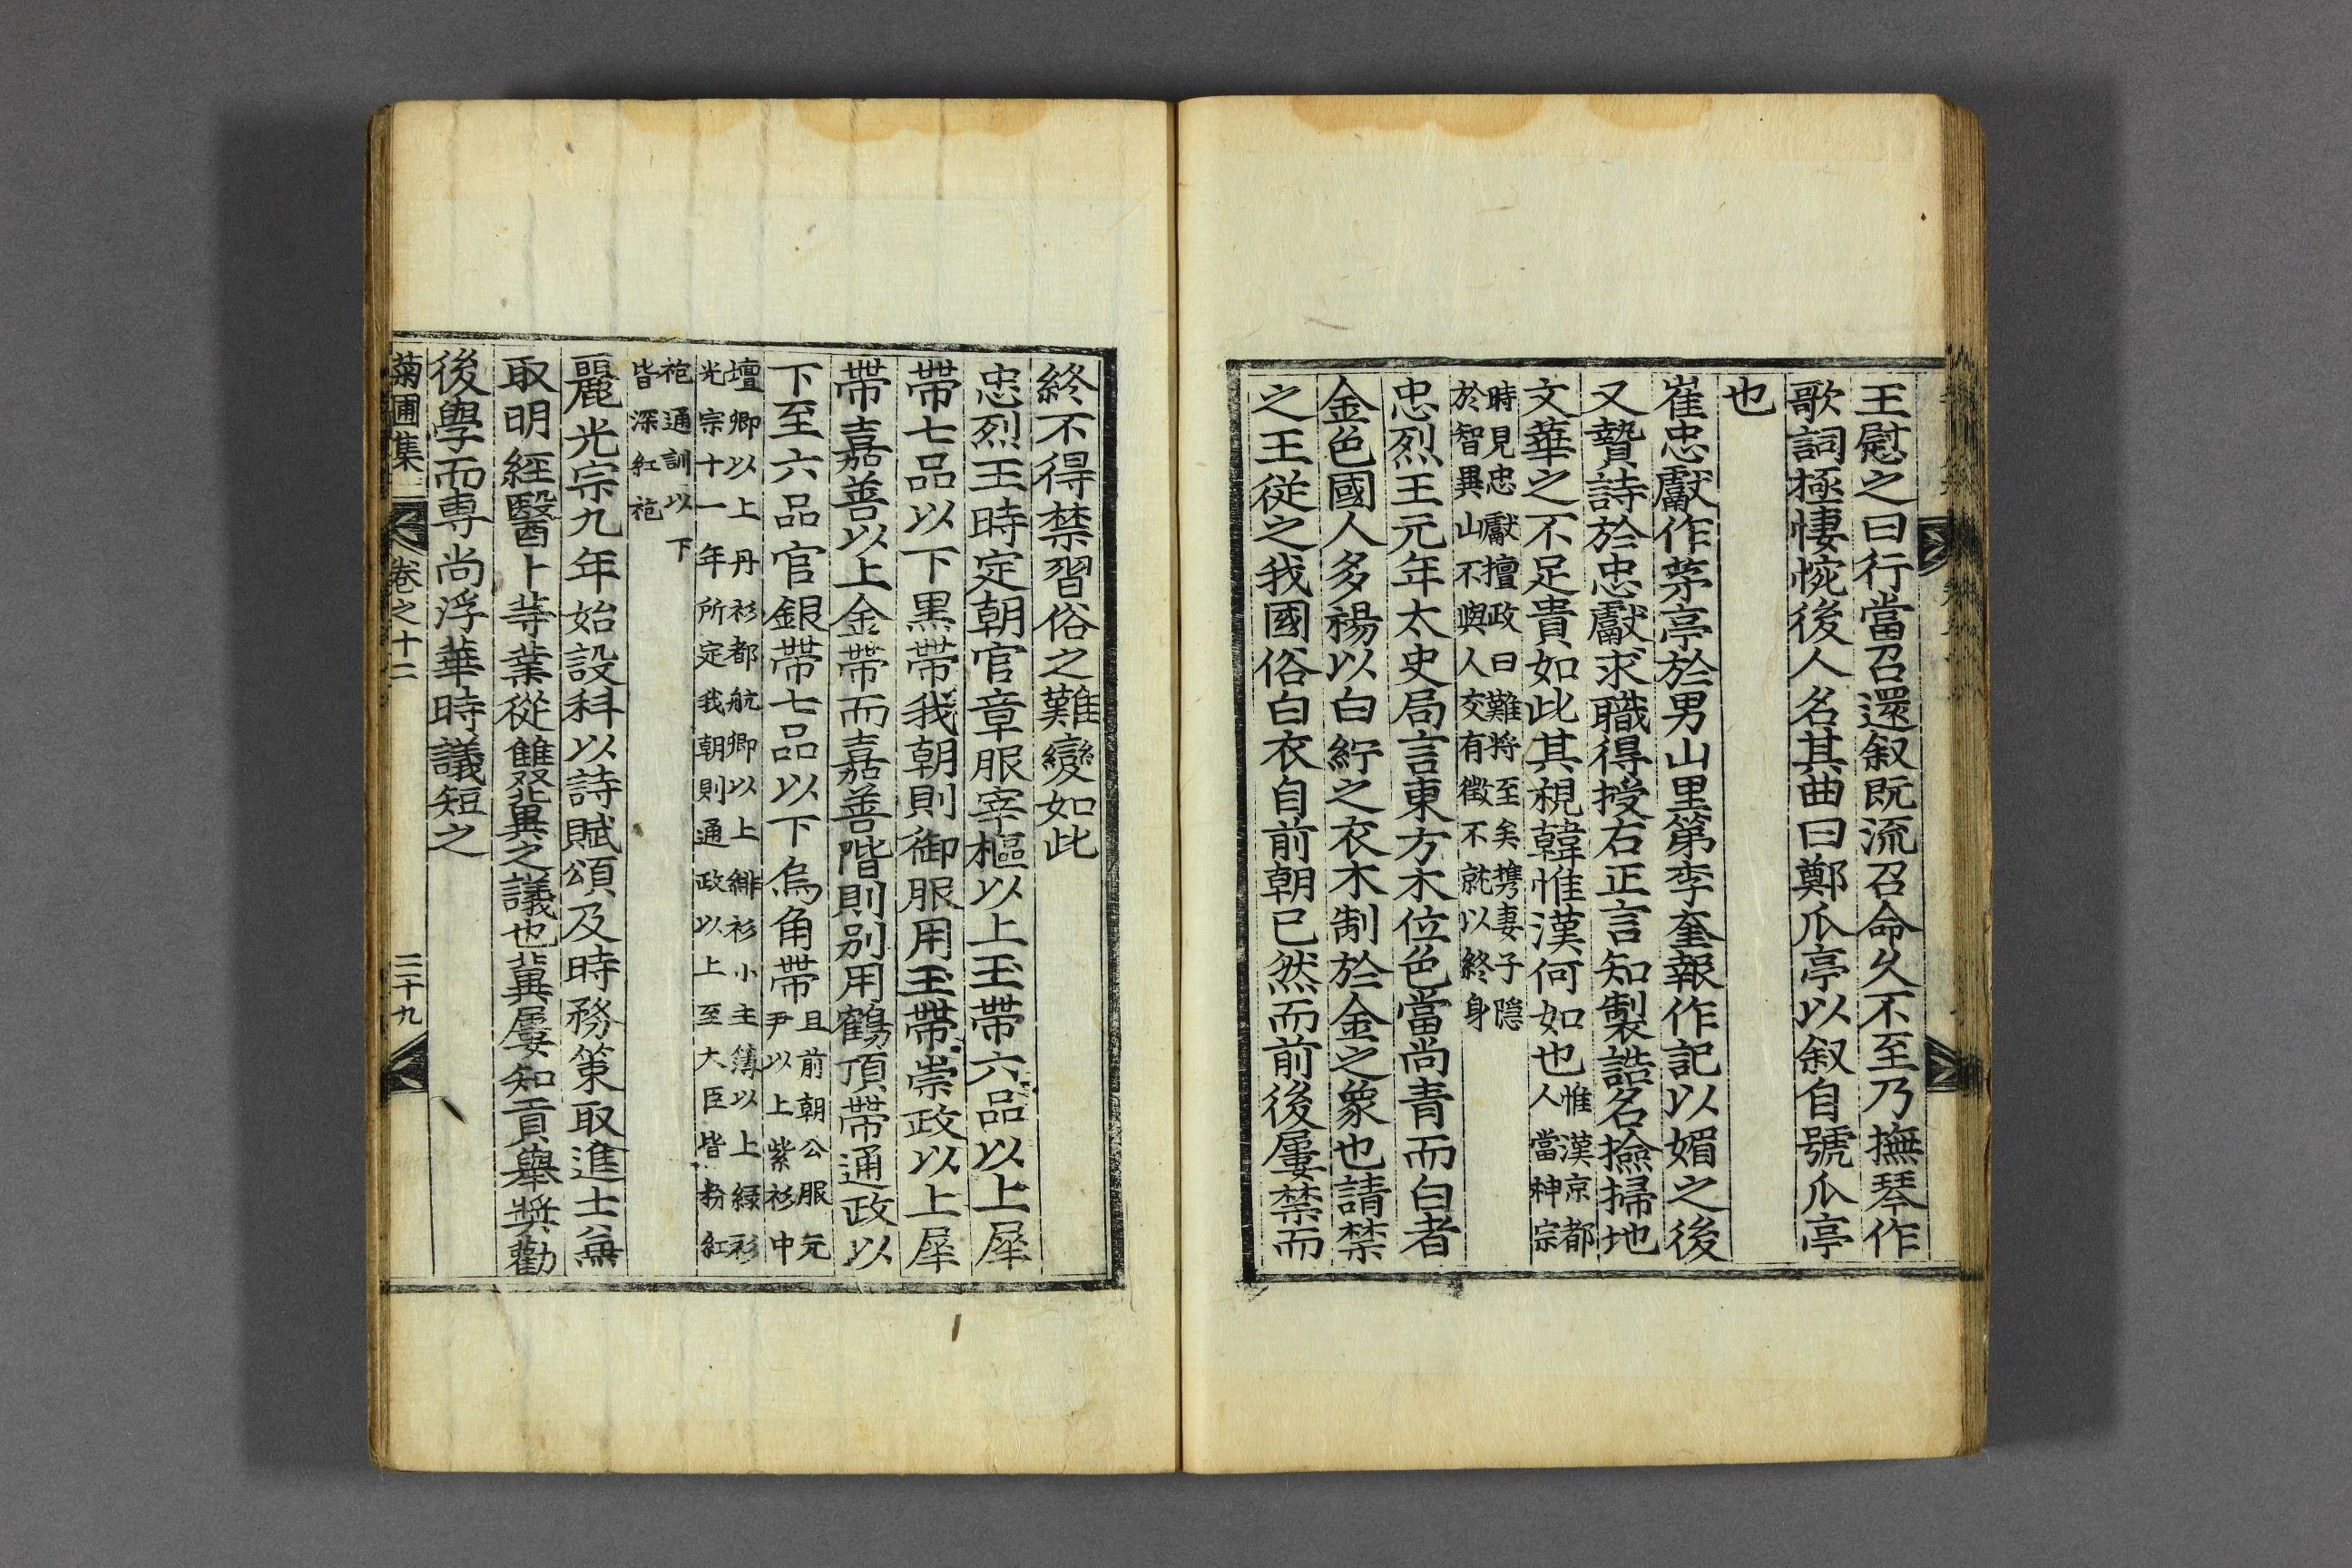 王慰之曰行當召還叙既流召命久不至乃撫琴作
歌詞極悽惋後人名其曲曰鄭瓜亭以叙自號瓜亭
也
崔忠獻作茅亭於男山里第李奎報作記以媚之後
又贄詩於忠獻求職得授右正言知製誥名撿掃地
文華之不足貴如此其視韓惟漢何如也惟漢京都
人當神宗
時見忠獻擅政曰難將至矣携妻子隱
於智異山不與人交有徵不就以終身
忠烈王元年太史局言東方木位色當尚青而白者
金色國人多褐以白紵之衣木制於金之象也請禁
之王從之我國俗白衣自前朝已然而前後屢禁而
終不得禁習俗之難變如此
忠烈王時定朝官章服宰樞以上玉帶六品以上犀
帶七品以下黑帶我朝則御服用玉帶崇政以上犀
帶嘉善以上金帶而嘉善階則别用鶴頂帶通政以
下至六品官銀帶七品以下烏角帶且前朝公服元
尹以上紫衫中
壇卿以上丹衫都航卿以上緋衫小主簿以上綠衫
光宗十一年所定我朝則通政以上至大臣皆粉紅
袍通訓以下
皆深紅袍
麗光宗九年始設科以詩賦頌及時務策取進士無
取明經醫卜等業從雙冀之議也冀屢知貢舉奬勸
後學而專尚浮華時議短之
菊圃集 卷之十二 二十九